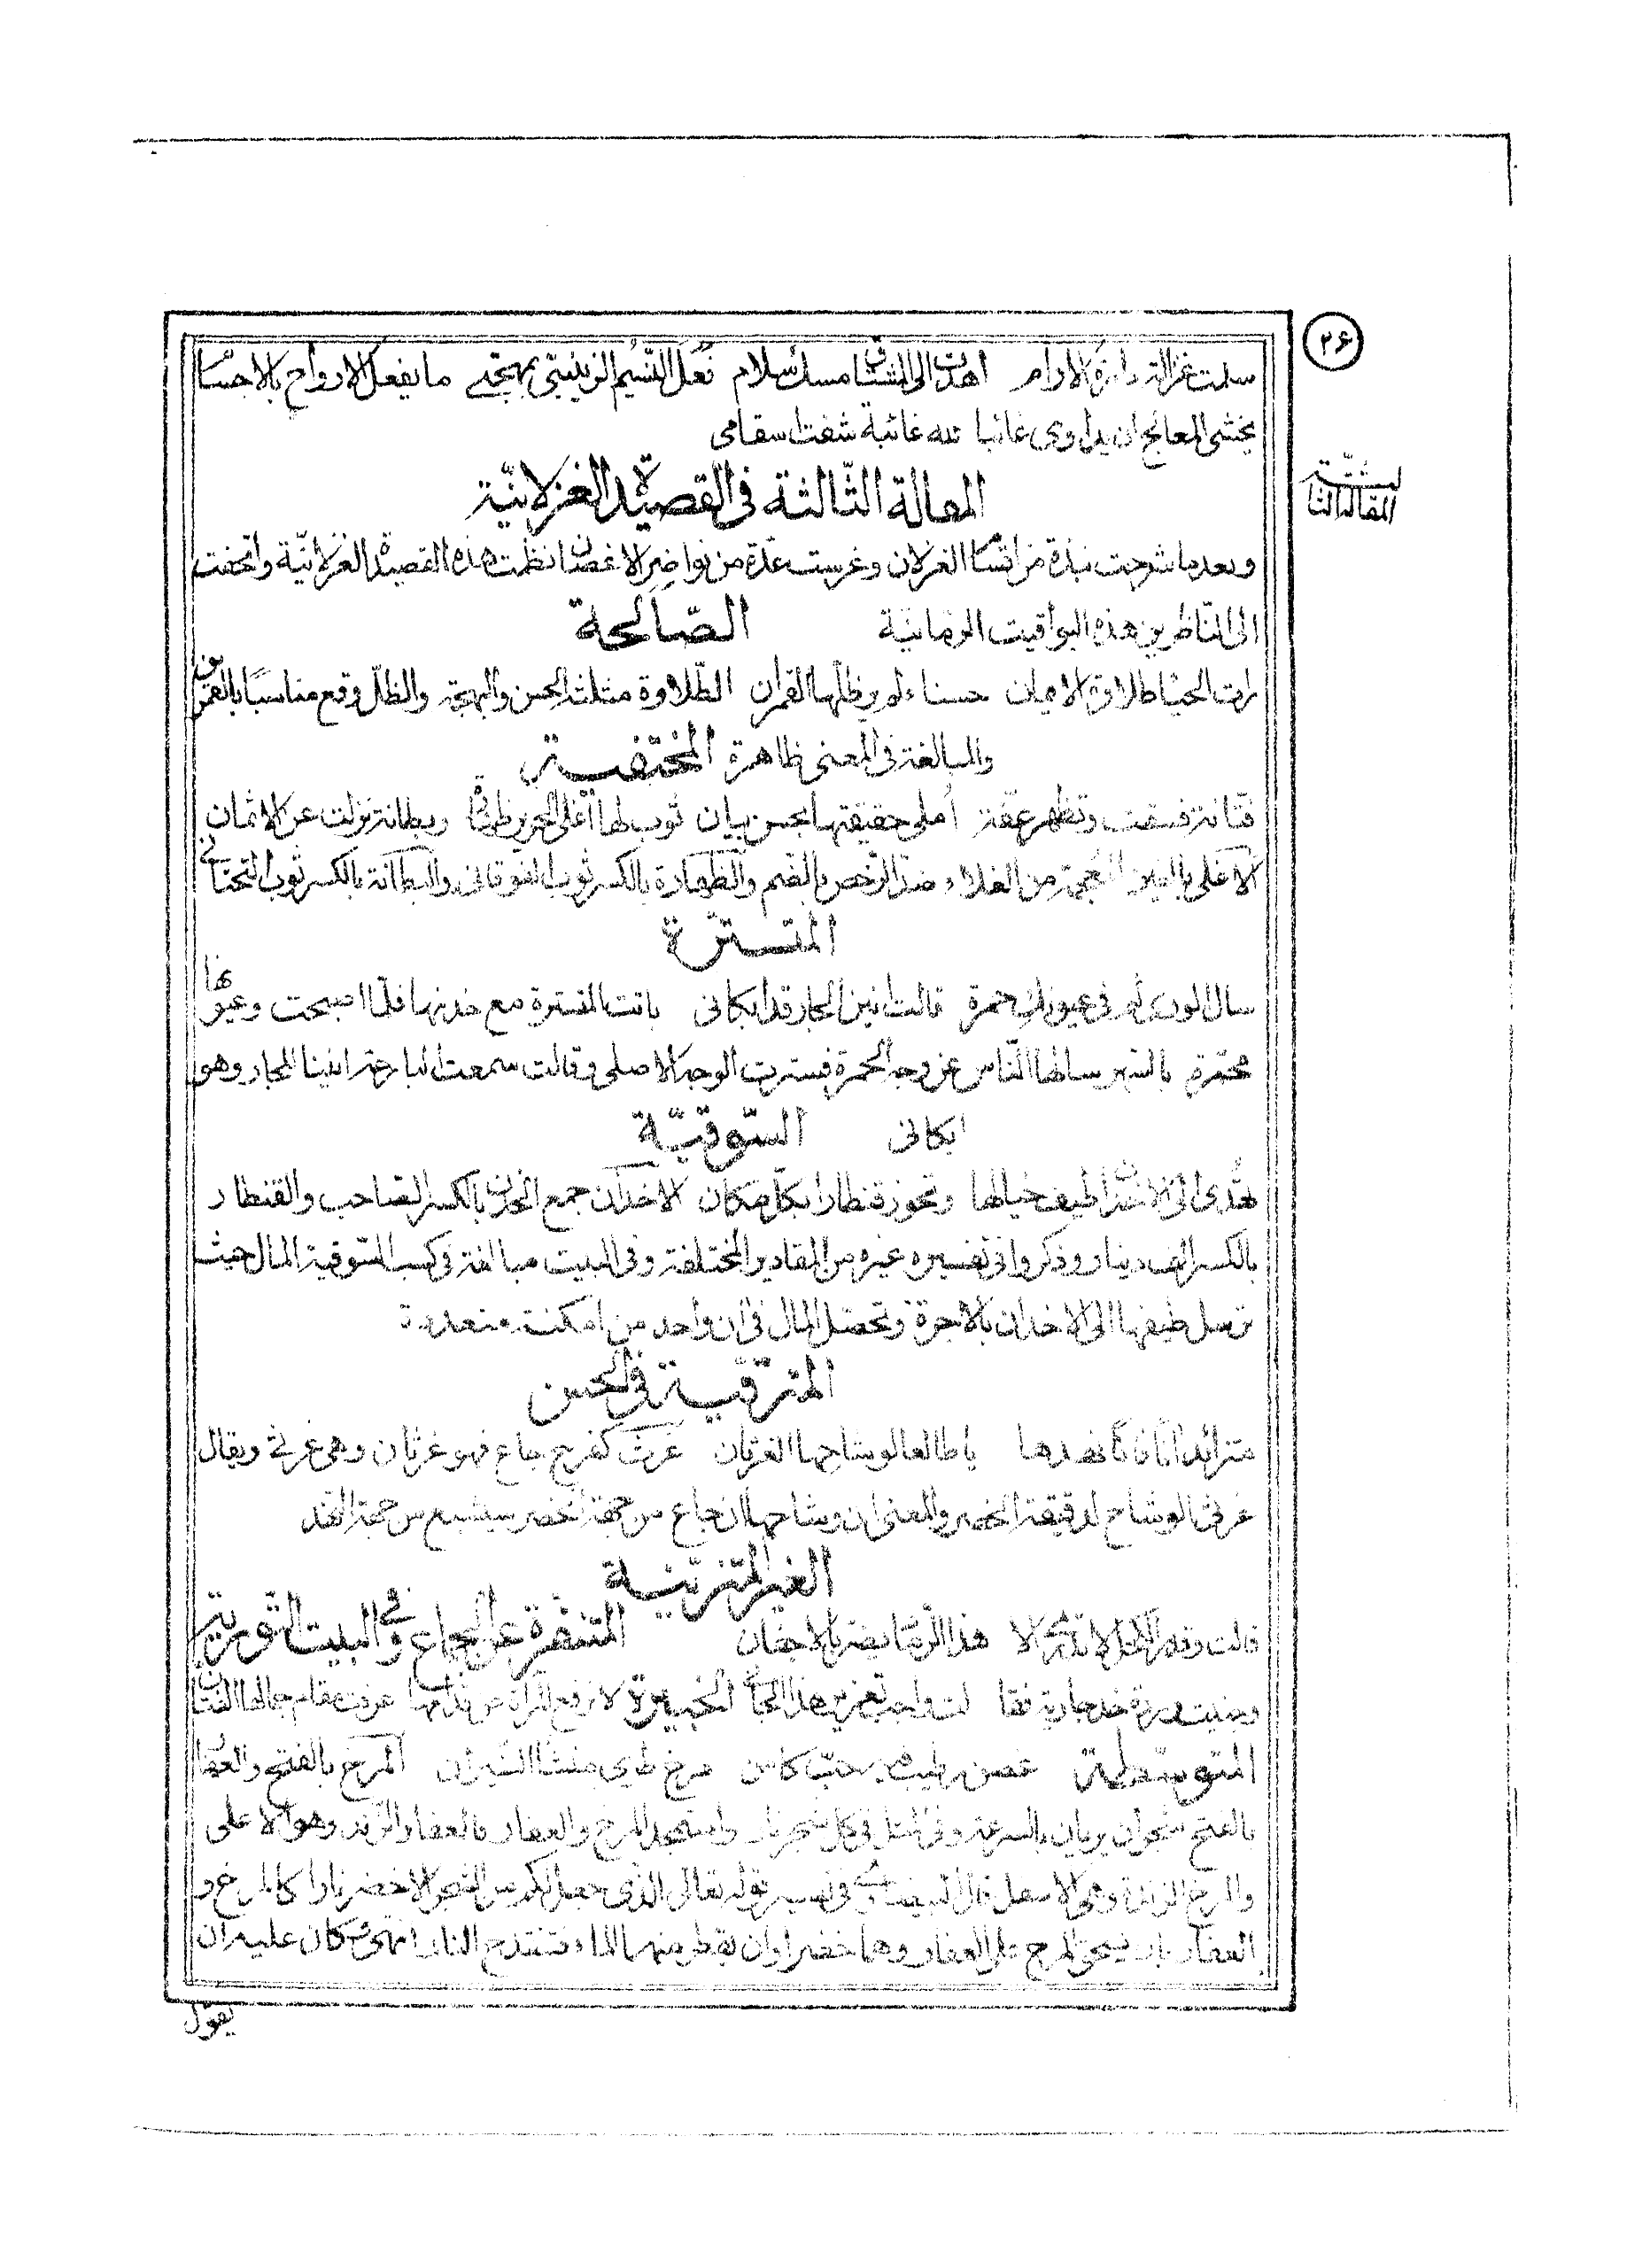 ٢٦
سلمت غزالة دارة الارام اهدت الى المشتاق مسك سلام فعل النسيم الزينبي بمهجتي ما يفعل الارواح بالاجسا
يخشى المعالج ان يداوي غائبا لله غائبة شفت اسقامي
المقالة الثالثة
المقالة الثّالثة في القصيدة الغزلانيّة
وبعد ما شرحت نبذة من اقسام الغزلان وغرست عدّة من نواضر الاغصان نظمت هذه القصيدة الغزلانيّة واتحفت
الى النّاظرين هذه اليواقيت الرمانيّة الصّالحة
حسناء لم ير ظلّها القمران الطّلاوة مثلثة الحسن والبهجة والظلّ وقع مناسبًا بالقمرين
والمبالغة في المعنى ظاهرة المختفية
فتّانة فسقت وتظهر عفّة املى حقيقتها بحسن بيان ثوب لها اغلى الحرير ظهارة وبطانة نزلت عن الاثمان
الاغلى بالغين المعجمة من الغلاء ضدّ الرّخص بالضّم والظّهارة بالكسر ثوب الفوقاني والبطانة بالكسر ثوب التحتاني
المتستّرة
سال الورى لم في عيونك حمرة قالت انين الجار قد ابكاني باتت المتسترة مع خدنها فلمّا اصبحت وعيونها
محمّرة بالسّهر سالها النّاس عن وجه الحمرة فسترت الوجه الاصلي وقالت سمعت البارحة انين الجار وهو
ابكاني السّوقيّة
تهدي الى الاخدان طيف خيالها وتحوز قنطارا بكلّ مكان الاخدان جمع الخدن بالكسر الصّاحب والقنطار
بالكسر الف دينار وذكروا في تفسيره غيره من المقادير المختلفة وفي البيت مبالغة في كسب السّوقية المال حيث
ترسل طيفها الى الاخدان بالاجرة وتحصّل المال في ان واحد من امكنة متعددة
المترقّية في الحسن
متزائد انًا فانًا نهدها يا طالعا لوشاحها الغرثان غرث كفرح جاع فهو غرثان وهي غرثى ويقال
غرثى الوشاح لدقيقة الخصر والمعنى ان وشاحها ان جاع من جهة الخصر سيشبع من جهة النهد
الغير المتزيّنة
قالت وقد المتنفّرة عن الجماع وفي البيت التّورية
الخبيرة
المتوسّطة غصن رطيب حبّ كامن مرخ طري منشأ النّيران المرخ بالفتح والعفار
بالفتح شجران يريان بالسرعة وفي المثل في كل شجر نار واستمجد المرخ والعفار والعفار الزّند وهو الاعلى
والمرخ الزندة وهي الاسفل قال البيضاوي في تفسير قوله تعالى الّذي جعل لكم من الشجر الاخضر نارا كالمرخ و
العفار بان يسحق المرخ على العفار وهما خضراوان يقطر منهما الماء فتنقدح النار انتهى وكان عليه ان
يقول